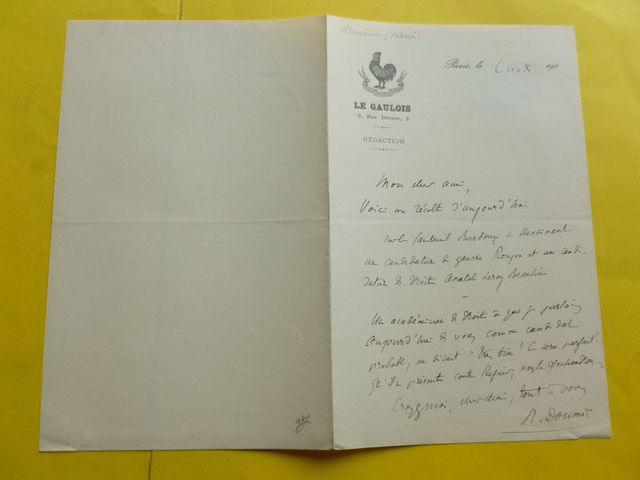 Doumic (René)
LE GAULOIS
2, Rue Drouot, 2
RÉDACTION
Paris, le Lundi 190
Mon cher ami,
Voici ma récolte d'aujourd'hui :
Sur le fauteuil Barboux se dessinent
une candidature de gauche Roujon et une candi-
dature de droite Anatole Leroy Beaulieu
Un académicien de droite à qui je parlais
aujourd'hui de vous comme candidat
probable, me disait "Très bien! Ce sera parfait!
S'il se présente contre Régnier, nous le
Croyez moi, cher ami, tout à vous
R. Doumic